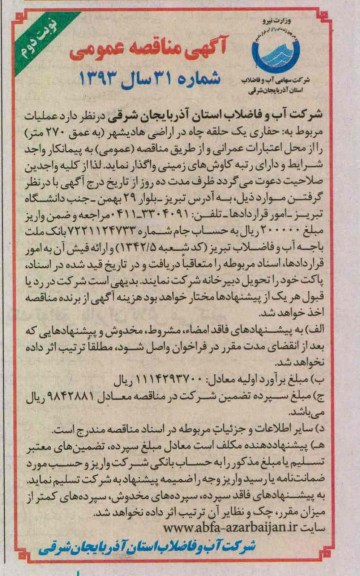 نوبت دوم
وزارت نیرو
شرکت سهامی آب و فاضلاب
استان آذربایجان شرقی
آگهی مناقصه عمومی
شماره ۳۱ سال ۱۳۹۳
شرکت آب و فاضلاب استان آذربایجان شرقی در نظر دارد عملیات
مربوط به: حفاری یک حلقه چاه در اراضی هادیشهر (به عمق ۲۷۰ متر)
را از محل اعتبارات عمرانی و از طریق مناقصه (عمومی) به پیمانکار واجد
شرایط و دارای رتبه کاوش‌های زمینی واگذار نماید. لذا از کلیه واجدین
صلاحیت دعوت می‌گردد ظرف مدت ده روز از تاریخ درج آگهی با در نظر
گرفتن موارد ذیل، به آدرس تبریز ـ بلوار ۲۹ بهمن ـ جنب دانشگاه
تبریز ـ امور قراردادها ـ تلفن: ۳۳۰۴۰۹۱ـ۰۴۱۱ مراجعه و ضمن واریز
مبلغ ۲۰۰۰۰۰ ریال به حساب جام شماره ۷۲۲۱۱۲۴۷۳۳ بانک ملت
باجه آب و فاضلاب تبریز (کد شعبه ۱۳۴۲/۵) و ارائه فیش آن به امور
قراردادها، اسناد مربوطه را متعاقباً دریافت و در تاریخ قید شده در اسناد،
پاکت خود را تحویل دبیرخانه شرکت نمایند. بدیهی است شرکت در رد یا
قبول هر یک از پیشنهادها مختار خواهد بود هزینه آگهی از برنده مناقصه
اخذ خواهد شد.
الف) به پیشنهادهای فاقد امضاء، مشروط، مخدوش و پیشنهادهایی که
بعد از انقضای مدت مقرر در فراخوان واصل شود، مطلقاً ترتیب اثر داده
نخواهد شد.
ب) مبلغ برآورد اولیه معادل: ۱۱۱۴۲۹۳۷۰۰ ریال
ج) مبلغ سپرده تضمین شرکت در مناقصه معادل ۹۸۴۲۸۸۱ ریال
می‌باشد.
د) سایر اطلاعات و جزئیات مربوطه در اسناد مناقصه مندرج است.
هـ) پیشنهاددهنده مکلف است معادل مبلغ سپرده، تضمین‌های معتبر
تسلیم یا مبلغ مذکور را به حساب بانکی شرکت واریز و حسب مورد
ضمانت‌نامه یا رسید واریز وجه را ضمیمه پیشنهاد به شرکت تسلیم نماید.
به پیشنهادهای فاقد سپرده، سپرده‌های مخدوش، سپرده‌های کمتر از
میزان مقرر، چک و نظایر آن ترتیب اثر داده نخواهد شد.
سایت www.abfa-azarbaijan.ir
شرکت آب و فاضلاب استان آذربایجان شرقی